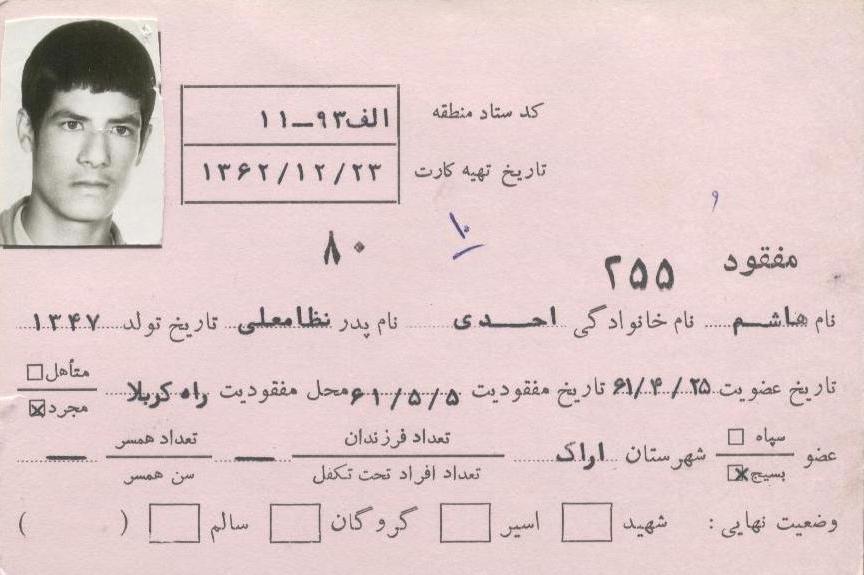 کد ستاد منطقه الف۹۳ــ۱۱
تاریخ تهیه کارت ۱۳۶۲/۱۲/۲۳
و
۱۰
۸۰
مفقود ۲۵۵
نام هاشم نام خانوادگی احمدی نام پدر نظامعلی تاریخ تولد ۱۳۴۷
تاریخ عضویت ۶۱/۴/۲۵ تاریخ مفقودیت ۶۱/۵/۵ محل مفقودیت راه کربلا متأهل
مجرد
عضو سپاه شهرستان اراک تعداد فرزندان ــ تعداد همسر ــ
بسیج تعداد افراد تحت تکفل سن همسر
وضعیت نهایی: شهید اسیر گروگان سالم ( )